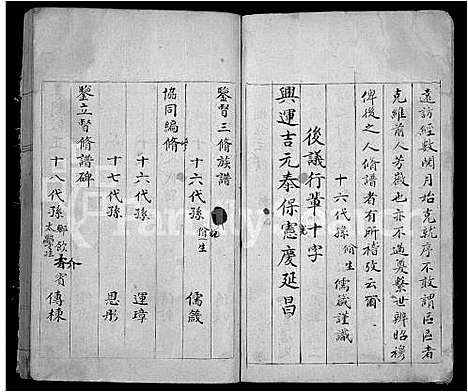 遠訪經數閱月始克就序不敢謂區區者
克維前人芳徽也亦不過憂繫世辨昭穆
俾後之人脩譜者有所稽攷云爾
十六代孫 儒箴謹識
後議行輩十字
興運吉元泰保憲慶延昌
鑒督三脩族譜
十六代孫 儒箴
協同編脩
十六代孫 運璋
十七代孫 思彤
鑒立督脩譜碑
十八代孫 鄉飲介賓 傳棟
FamilySearch